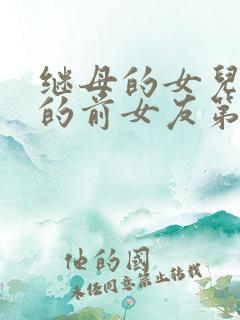 继母的女兒
的前女友第
他的國
未经同意禁止转载